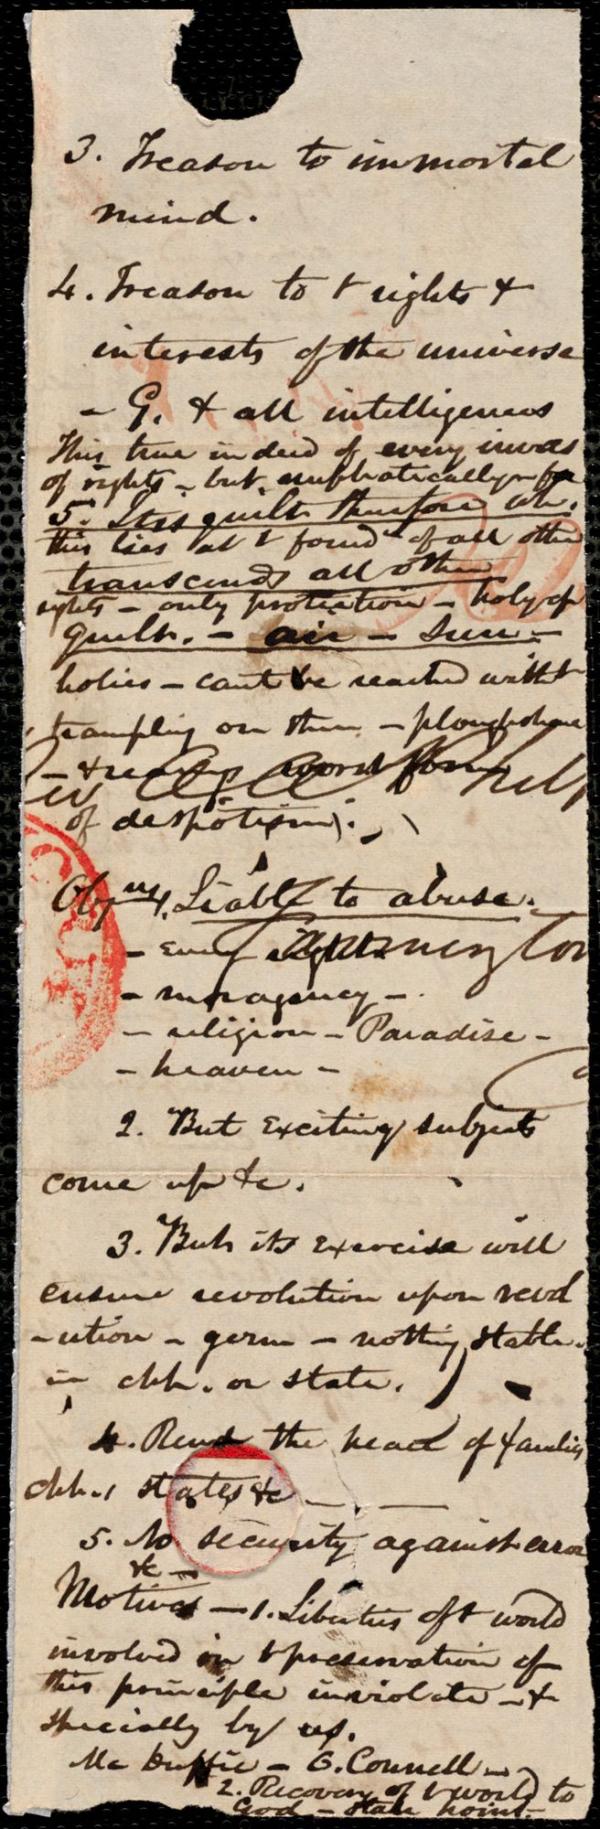 3. Treason to immortal
mind.
4. Treason to t rights &
interests of the universe
- G. & all intelligences
This true indeed of every invas
of rights - but emphatically - for
5. Its guilt therefore
this lies at t found of all other
transcends all other
rights - only protection - holy of
guilt. - air - sun -
holies - cant be reached witht
trampling on them - ploughshare
- worst form
of despotism).
Objns 1. Liable to abuse.
- every right
- mor agency -
- religion - Paradise -
- heaven -
2. But Exciting subjects
come up &c.
3. But its Exercise will
ensure revolution upon revol
-ution - germ - nothing stable
in chh. or state.
4. Rend the peace of families
chh., states &c
5. No security against error
&c -
Motives - 1. Liberties of t world
involved in t preservation of
this principle inviolate - &
specially by us.
Mc Duffie - O. Connell -
2. Recovery of t world to
God - state point -